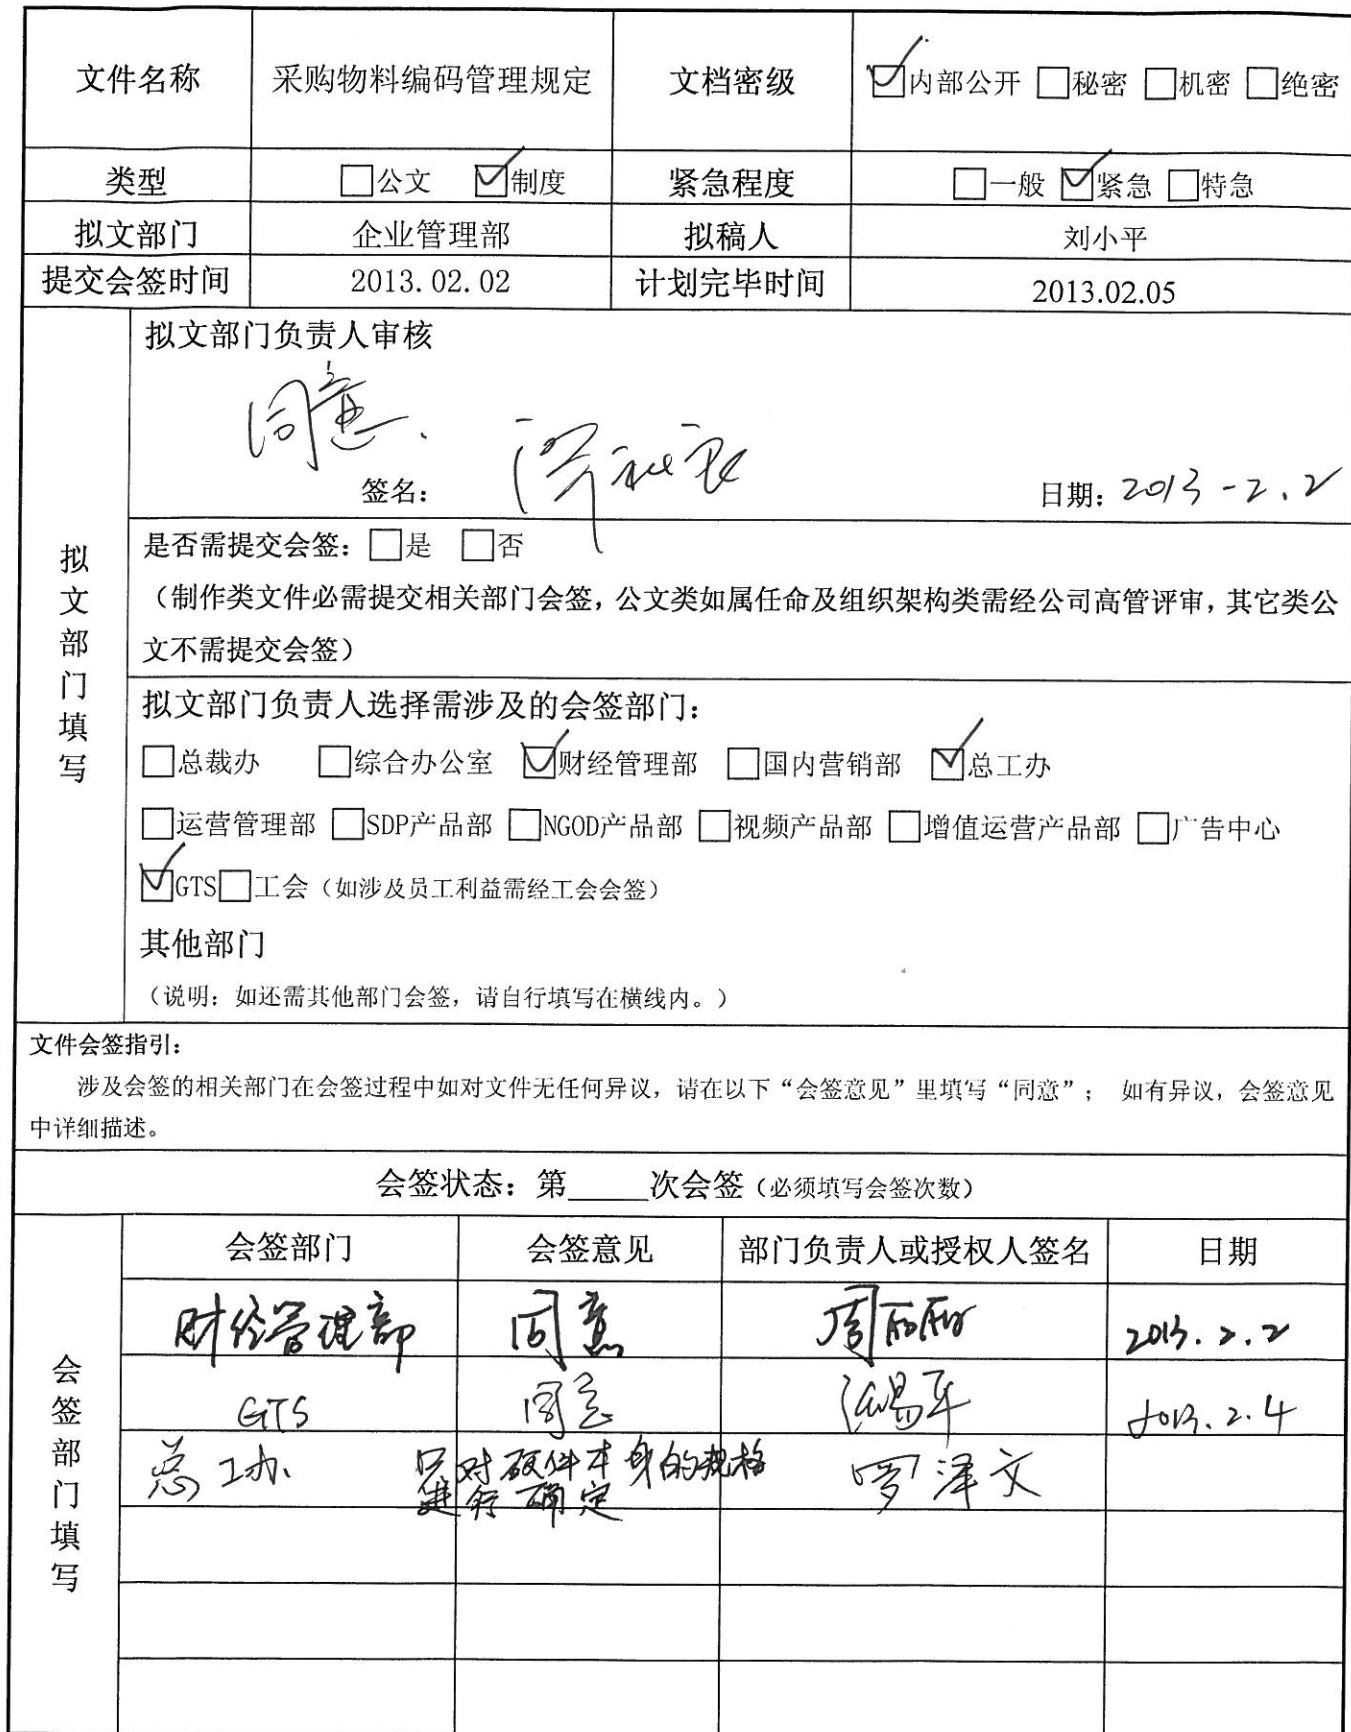 文件名称 采购物料编码管理规定 文档密级 ☑内部公开 □秘密 □机密 □绝密
类型 □公文 ☑制度 紧急程度 □一般 ☑紧急 □特急
拟文部门 企业管理部 拟稿人 刘小平
提交会签时间 2013.02.02 计划完毕时间 2013.02.05
拟文部门填写
拟文部门负责人审核
同意.
签名: 日期: 2013-2.2
是否需提交会签: □是 □否
（制作类文件必需提交相关部门会签, 公文类如属任命及组织架构类需经公司高管评审, 其它类公
文不需提交会签）
拟文部门负责人选择需涉及的会签部门:
□总裁办 □综合办公室 ☑财经管理部 □国内营销部 ☑总工办
□运营管理部 □SDP产品部 □NGOD产品部 □视频产品部 □增值运营产品部 □广告中心
☑GTS□工会（如涉及员工利益需经工会会签）
其他部门
（说明: 如还需其他部门会签, 请自行填写在横线内。）
文件会签指引:
涉及会签的相关部门在会签过程中如对文件无任何异议, 请在以下“会签意见”里填写“同意”; 如有异议, 会签意见
中详细描述。
会签状态: 第_____次会签（必须填写会签次数）
会签部门填写
会签部门 会签意见 部门负责人或授权人签名 日期
财经管理部 同意 周丽 2013.2.2
GTS 同意 2013.2.4
总工办 只对硬件本身的规格 罗泽文
进行确定